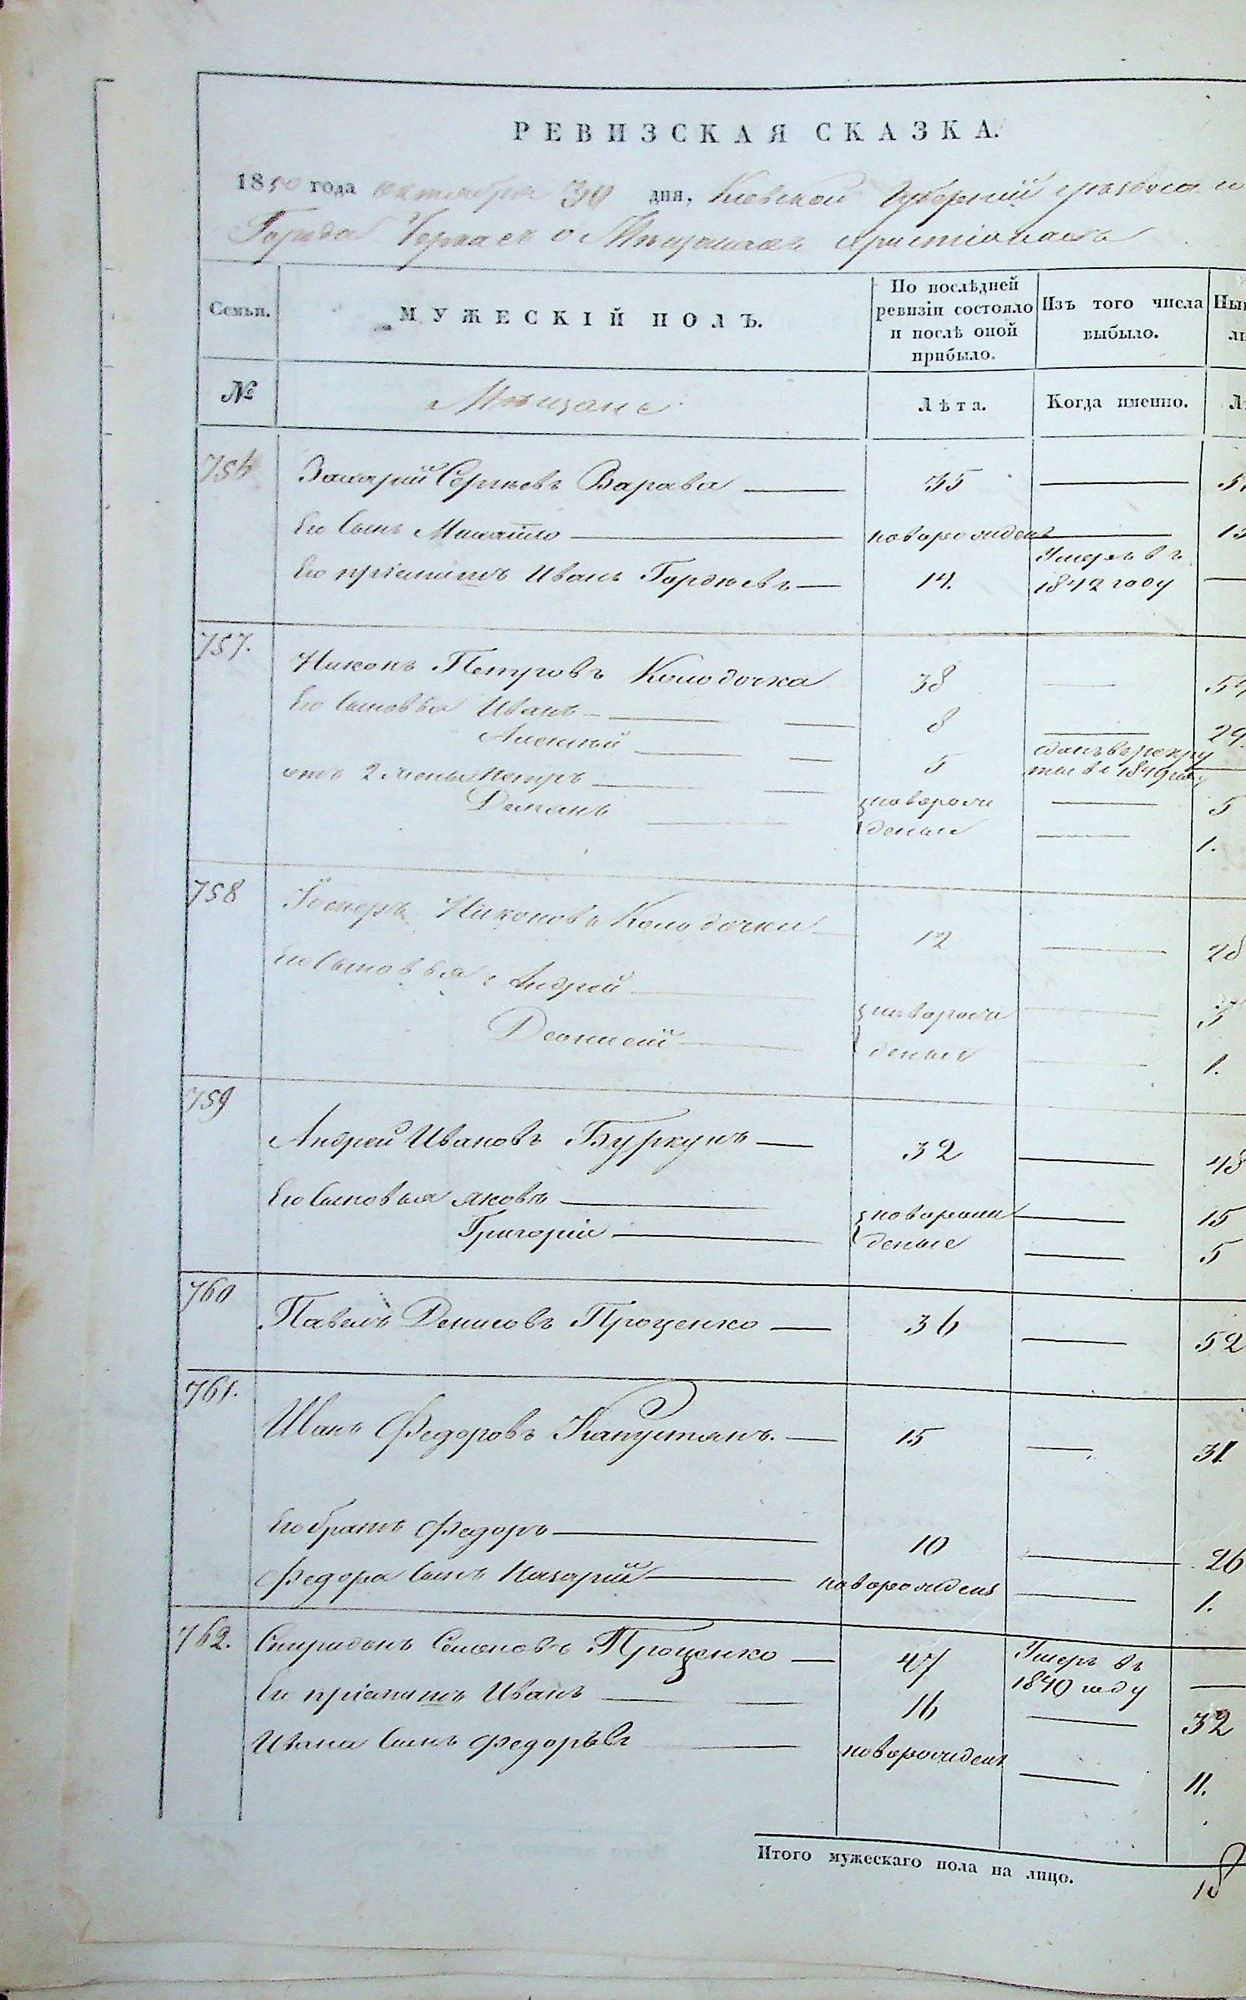 РЕВИЗСКАЯ СКАЗКА.
1850 года октября 30 дня, Киевской Губернии уезднаго
Города Черкасъ о Мѣщанахъ христіанахъ
Семьи. МУЖЕСКІЙ ПОЛЪ. По послѣдней ревизіи состояло и послѣ оной прибыло. Изъ того числа выбыло.
№ Мѣщане Лѣта. Когда именно.
756 Захарій Сергѣевъ Варава 35
Его сынъ Михайло новорожденъ 15
Его пріемышъ Иванъ Гордѣевъ 14. Умеръ въ 1842 году
757. Никонъ Петровъ Колодочка 38 54
Его сыновья Иванъ 8
Алексѣй 5 сданъ в рекруты въ 1849 году
отъ 2 жены Петръ новорожденые 5
Демянъ 1.
758 Никоновъ Колодочка 12 28
Его сыновья Андрей новорожденые 3
Деонисій 1.
759 Андрей Ивановъ Буркунъ 32 48
Его сыновья Яковъ новорожденые 15
Григорій 5
760 Павелъ Денисовъ Проценко 36 52
761. Иванъ Федоровъ Капустянъ. 15 31
Его братъ Федоръ 10 26
Федора сынъ Назарій новорожденъ 1.
762. Спиридонъ Семеновъ Проценко 47 Умеръ въ 1840 году
Его пріемышъ Иванъ 16 32
Ивана сынъ Федоръ новорожденъ 11.
Итого мужескаго пола на лицо. 18